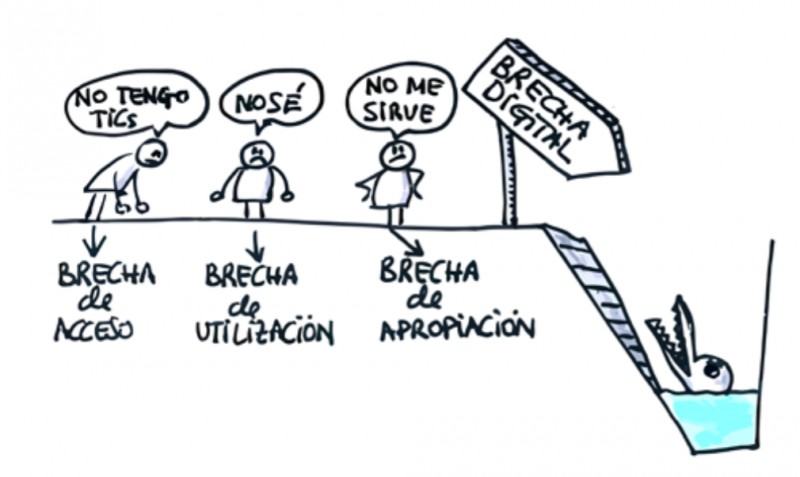 NO TENGO
TICs
NO SÉ
NO ME
SIRVE
BRECHA
DIGITAL
BRECHA
de
ACCESO
BRECHA
de
UTILIZACIÓN
BRECHA
de
APROPIACIÓN